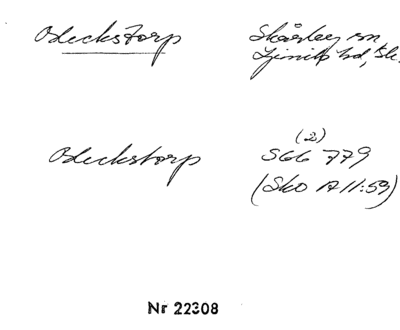 Bleckstorp Skårby sn
Ljunits hd, Sk.
(2)
Bleckstorp 779
(Sko A11:59)
Nr 22308